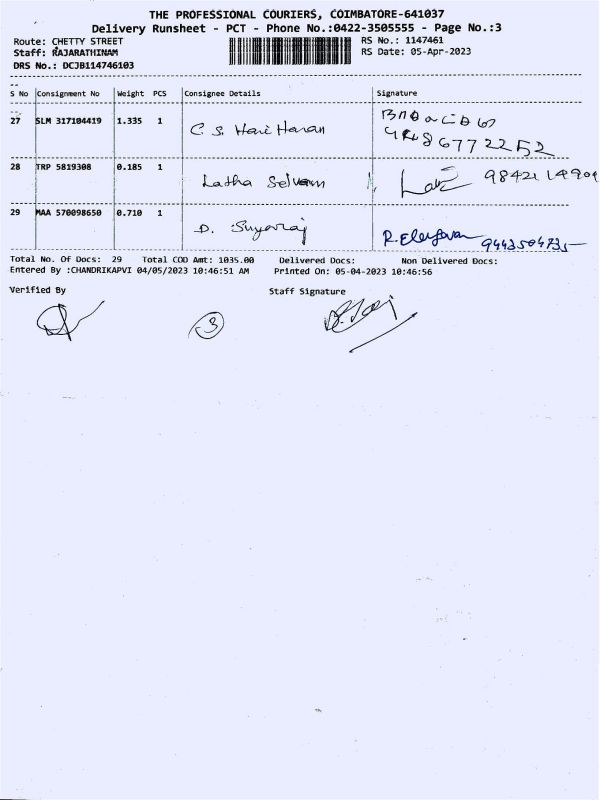 THE PROFESSIONAL COURIERS, COIMBATORE-641037
Delivery Runsheet - PCT - Phone No.:0422-3505555 - Page No.:3
Route: CHETTY STREET RS No.: 1147461
Staff: RAJARATHINAM RS Date: 05-Apr-2023
DRS No.: DCJB114746103
S No Consignment No Weight PCS Consignee Details Signature
27 SLM 317104419 1.335 1 C. S. Hari Haran
28 TRP 5819308 0.185 1 Latha Selvam
29 MAA 570098650 0.710 1 D. Suyaraj
Total No. Of Docs: 29 Total COD Amt: 1035.00 Delivered Docs: Non Delivered Docs:
Entered By :CHANDRIKAPVI 04/05/2023 10:46:51 AM Printed On: 05-04-2023 10:46:56
Verified By Staff Signature
3